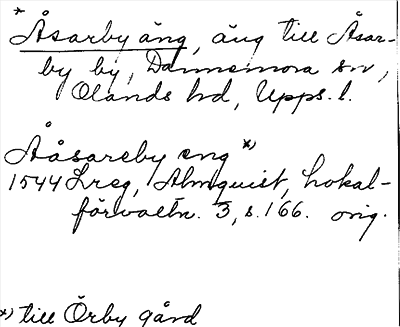 * Åsarby äng, äng till Åsar-
by by, Dannemora sn,
Olands hd, Upps. l.
Aåsareby eng *)
1544 Lreg, Almquist, Lokal-
förvaltn. 3, s. 166. orig.
*) till Örby gård